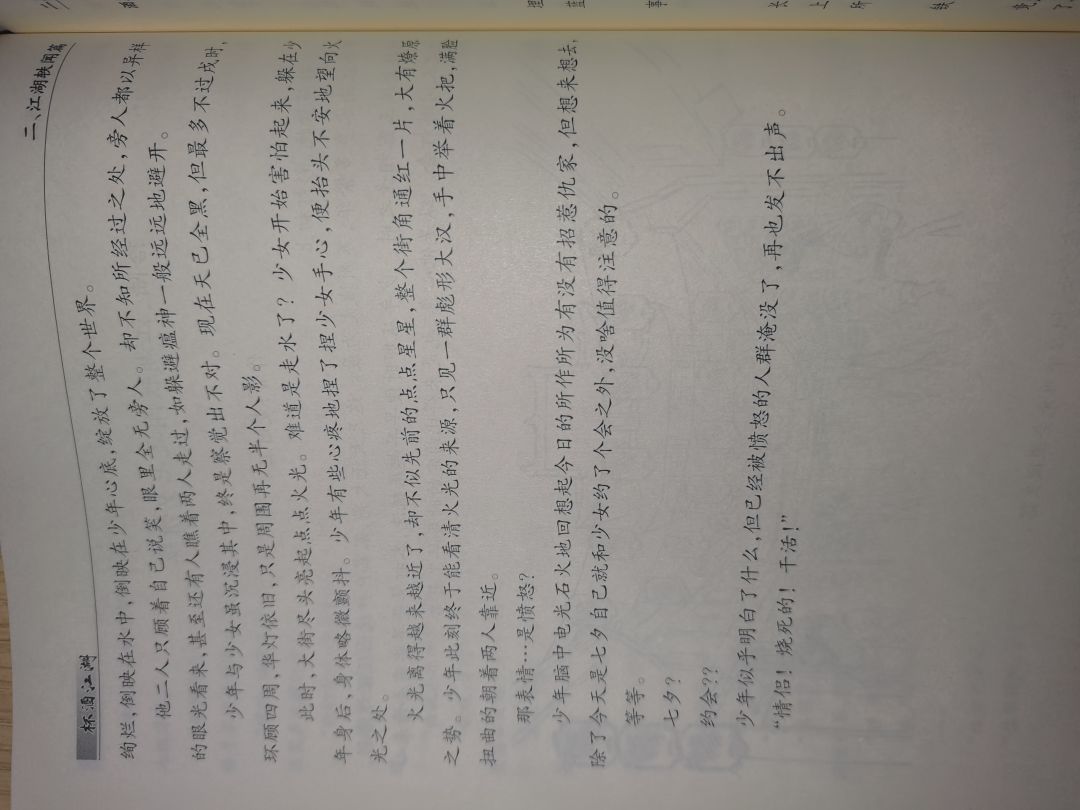 杯酒江湖
二、江湖轶闻篇
绚烂,倒映在水中,倒映在少年心底,绽放了整个世界。
他二人只顾着自己说笑,眼里全无旁人。却不知所经过之处,旁人都以异样
的眼光看来,甚至还有人瞧着两人走过,如躲避瘟神一般远远地避开。
少年与少女虽沉浸其中,终是察觉出不对。现在天已全黑,但最多不过戌时,
环顾四周,华灯依旧,只是周围再无半个人影。
此时,大街尽头亮起点点火光。难道是走水了?少女开始害怕起来,躲在少
年身后,身体略微颤抖。少年有些心疼地捏了捏少女手心,便抬头不安地望向火
光之处。
火光离得越来越近了,却不似先前的点点星星,整个街角通红一片,大有燎原
之势。少年此刻终于能看清火光的来源,只见一群彪形大汉,手中举着火把,满脸
扭曲的朝着两人靠近。
那表情……是愤怒?
少年脑中电光石火地回想起今日的所作所为有没有招惹仇家,但想来想去,
除了今天是七夕自己就和少女约了个会之外,没啥值得注意的。
等等。
七夕?
约会??
少年似乎明白了什么,但已经被愤怒的人群淹没了,再也发不出声。
“情侣!烧死的!干活!”